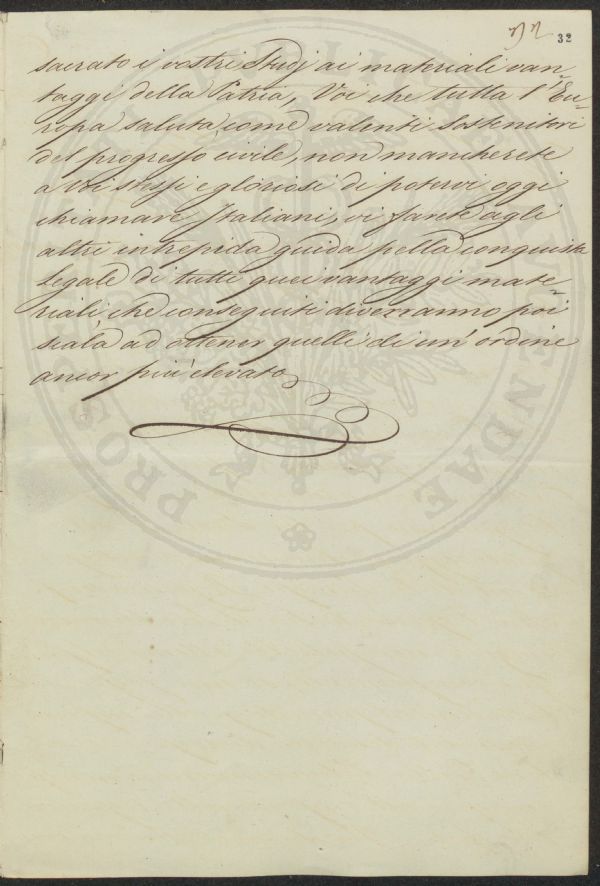 32
sacrato i vostri Studj ai materiali van-
taggi della Patria, Voi che tutta l'Eu-
ropa saluta come valenti Sostenitori
del progresso civile, non mancherete
a Voi stessi e gloriosi di potervi oggi
chiamare Italiani, vi farete agli
altri intrepida guida pella conquista
legale di tutti quei vantaggi mate-
riali che conseguiti diverranno poi
scala ad ottener quelli di un'ordine
ancor più elevato
PROS
ENDAE